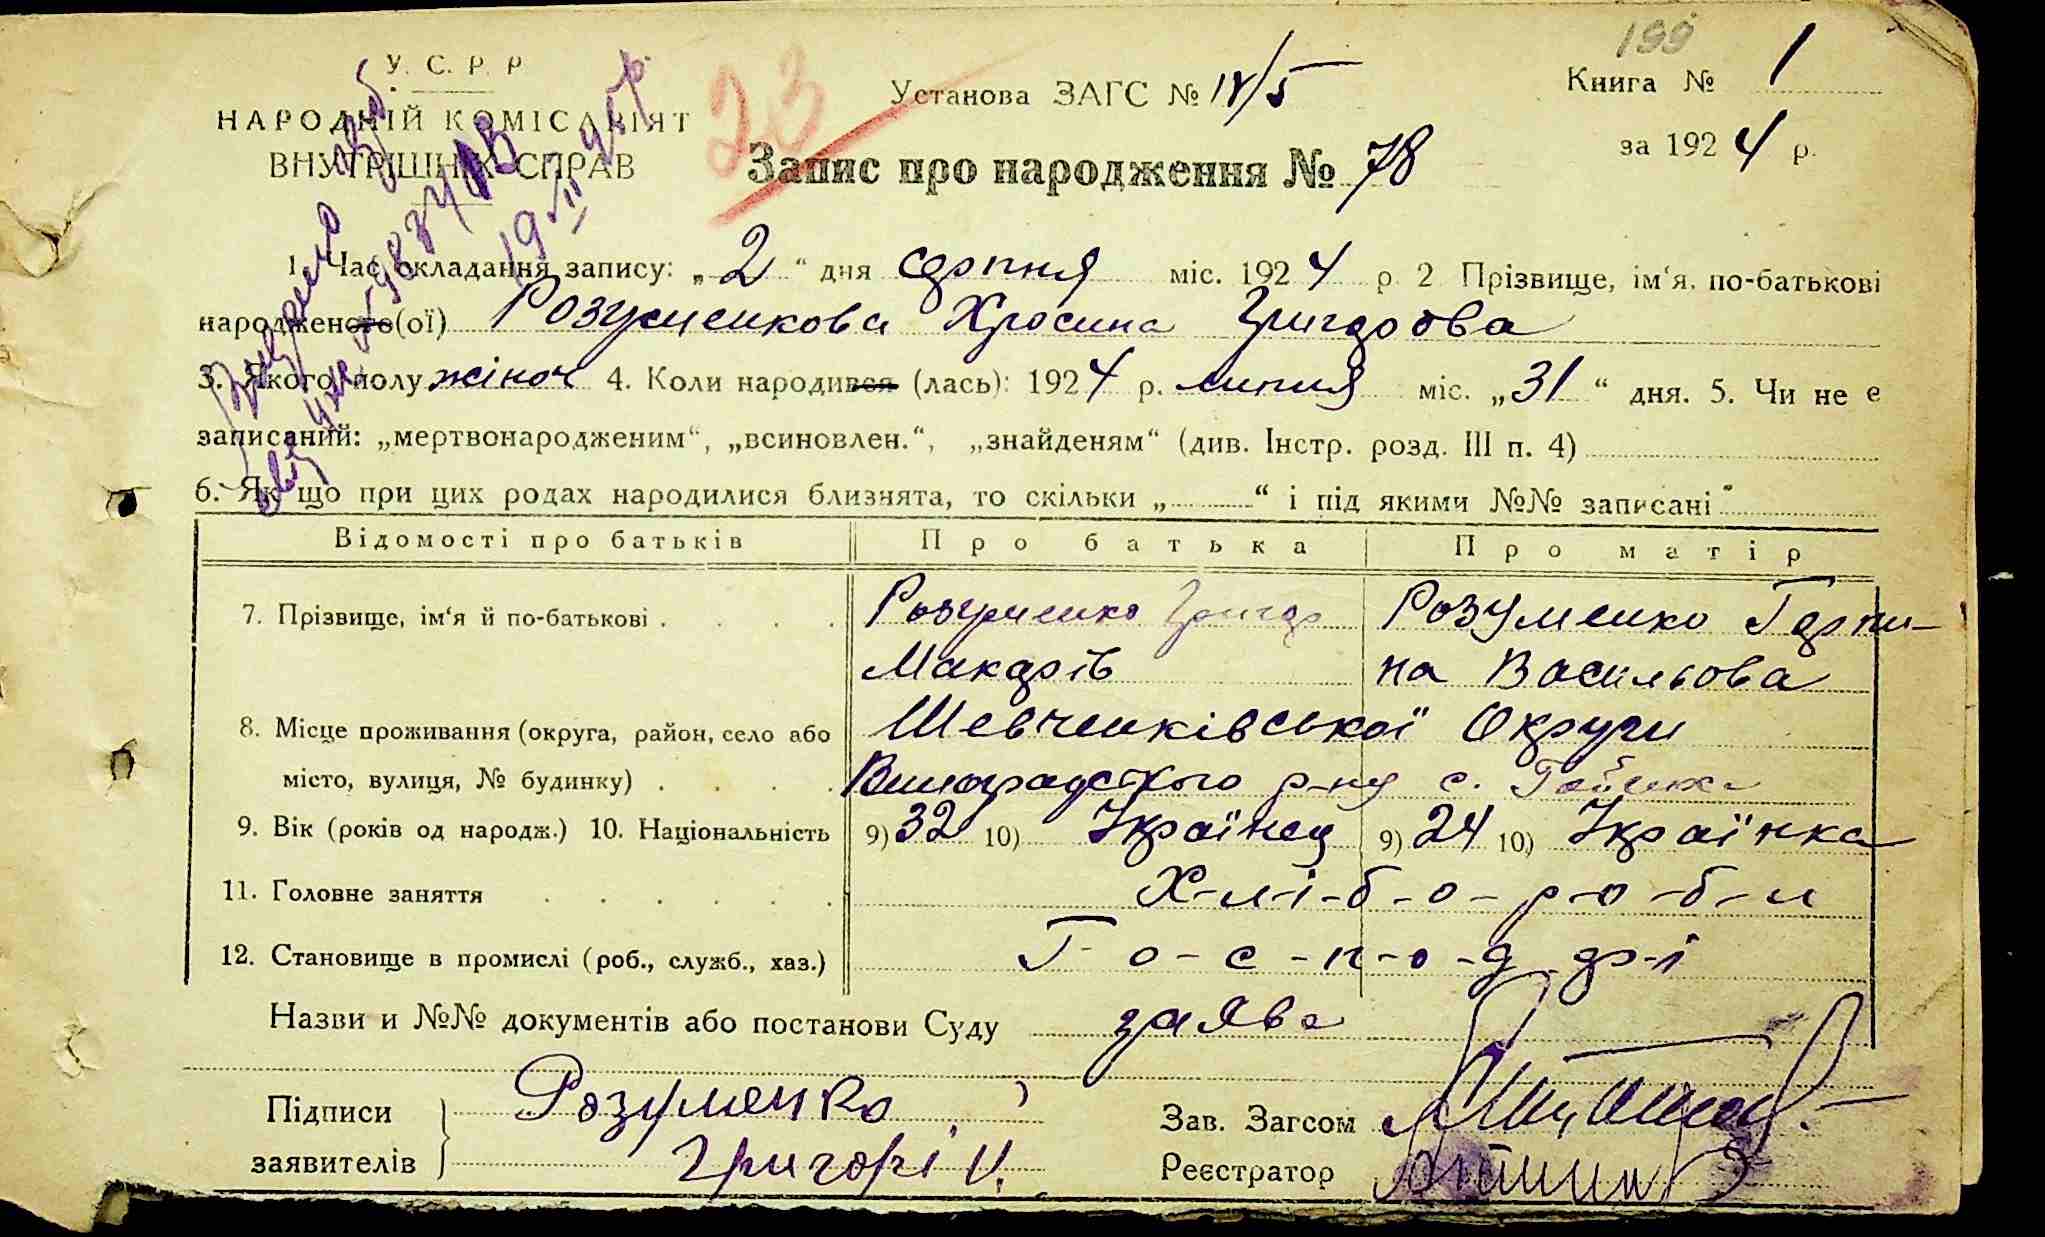 199
У. С. Р. Р
НАРОДНІЙ КОМІСАРІЯТ
ВНУТРІШНІХ СПРАВ
23
Установа ЗАГС № 18/5
Книга № 1
за 1924 р.
Запис про народження № 78
1. Час складання запису: „2“ дня серпня міс. 1924 р. 2 Прізвище, ім‘я, по-батькові
народженого(ої) Розуменкова Хросина Григорова
3. Якого полу жіноч 4. Коли народився (лась): 1924 р. липня міс. „31“ дня. 5. Чи не є
записаний: „мертвонародженим“, „всиновлен.“, „знайденям“ (див. Інстр. розд. III п. 4)
6. Як що при цих родах народилися близнята, то скільки „ “ і під якими №№ записані
Відомості про батьків Про батька Про матір
7. Прізвище, ім‘я й по-батькові Розуменко Григор Розуменко Горпи-
Макарів на Васильова
8. Місце проживання (округа, район, село або Шевченківської Округи
місто, вулиця, № будинку) Виноградського р-ну с.
9. Вік (років од народж.) 10. Національність 9) 32 10) Українец 9) 24 10) Українка
11. Головне заняття Х-л-і-б-о-р-о-б-и
12. Становище в промислі (роб., служб., хаз.) Г-о-с-п-о-д-ар-і
Назви и №№ документів або постанови Суду заява
Підписи Розуменко Зав. Загсом
заявителів Григорій. Реєстратор